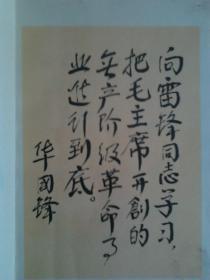 向雷锋同志学习，
把毛主席开創的
无产阶级革命事
业进行到底。
华国锋